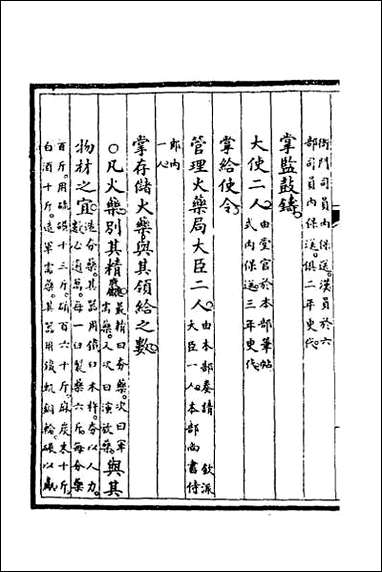 衙門司員內保送。漢員於六
部司員內保送。俱二年更代
掌監鼓鑄。
大使二人。由堂官於本部筆帖
式內保送三年更代
掌給使令。
管理火藥局大臣二人。由本部奏請 欽派
大臣一人。本部尚書侍
郎內
一人
掌存儲火藥與其領給之數。
○凡火藥。別其精麤。最精曰夯藥。次曰軍
需藥。又次曰演放藥。與其
物材之宜。造夯藥。其器用臼木杵。夯以人力。
數必逾萬。每一臼製藥六斤。每夯藥
百斤。用硫磺十三斤。硝百六十斤。麻炭末十斤。
白酒十斤。造軍需藥。其器用軋銅輪。碾以